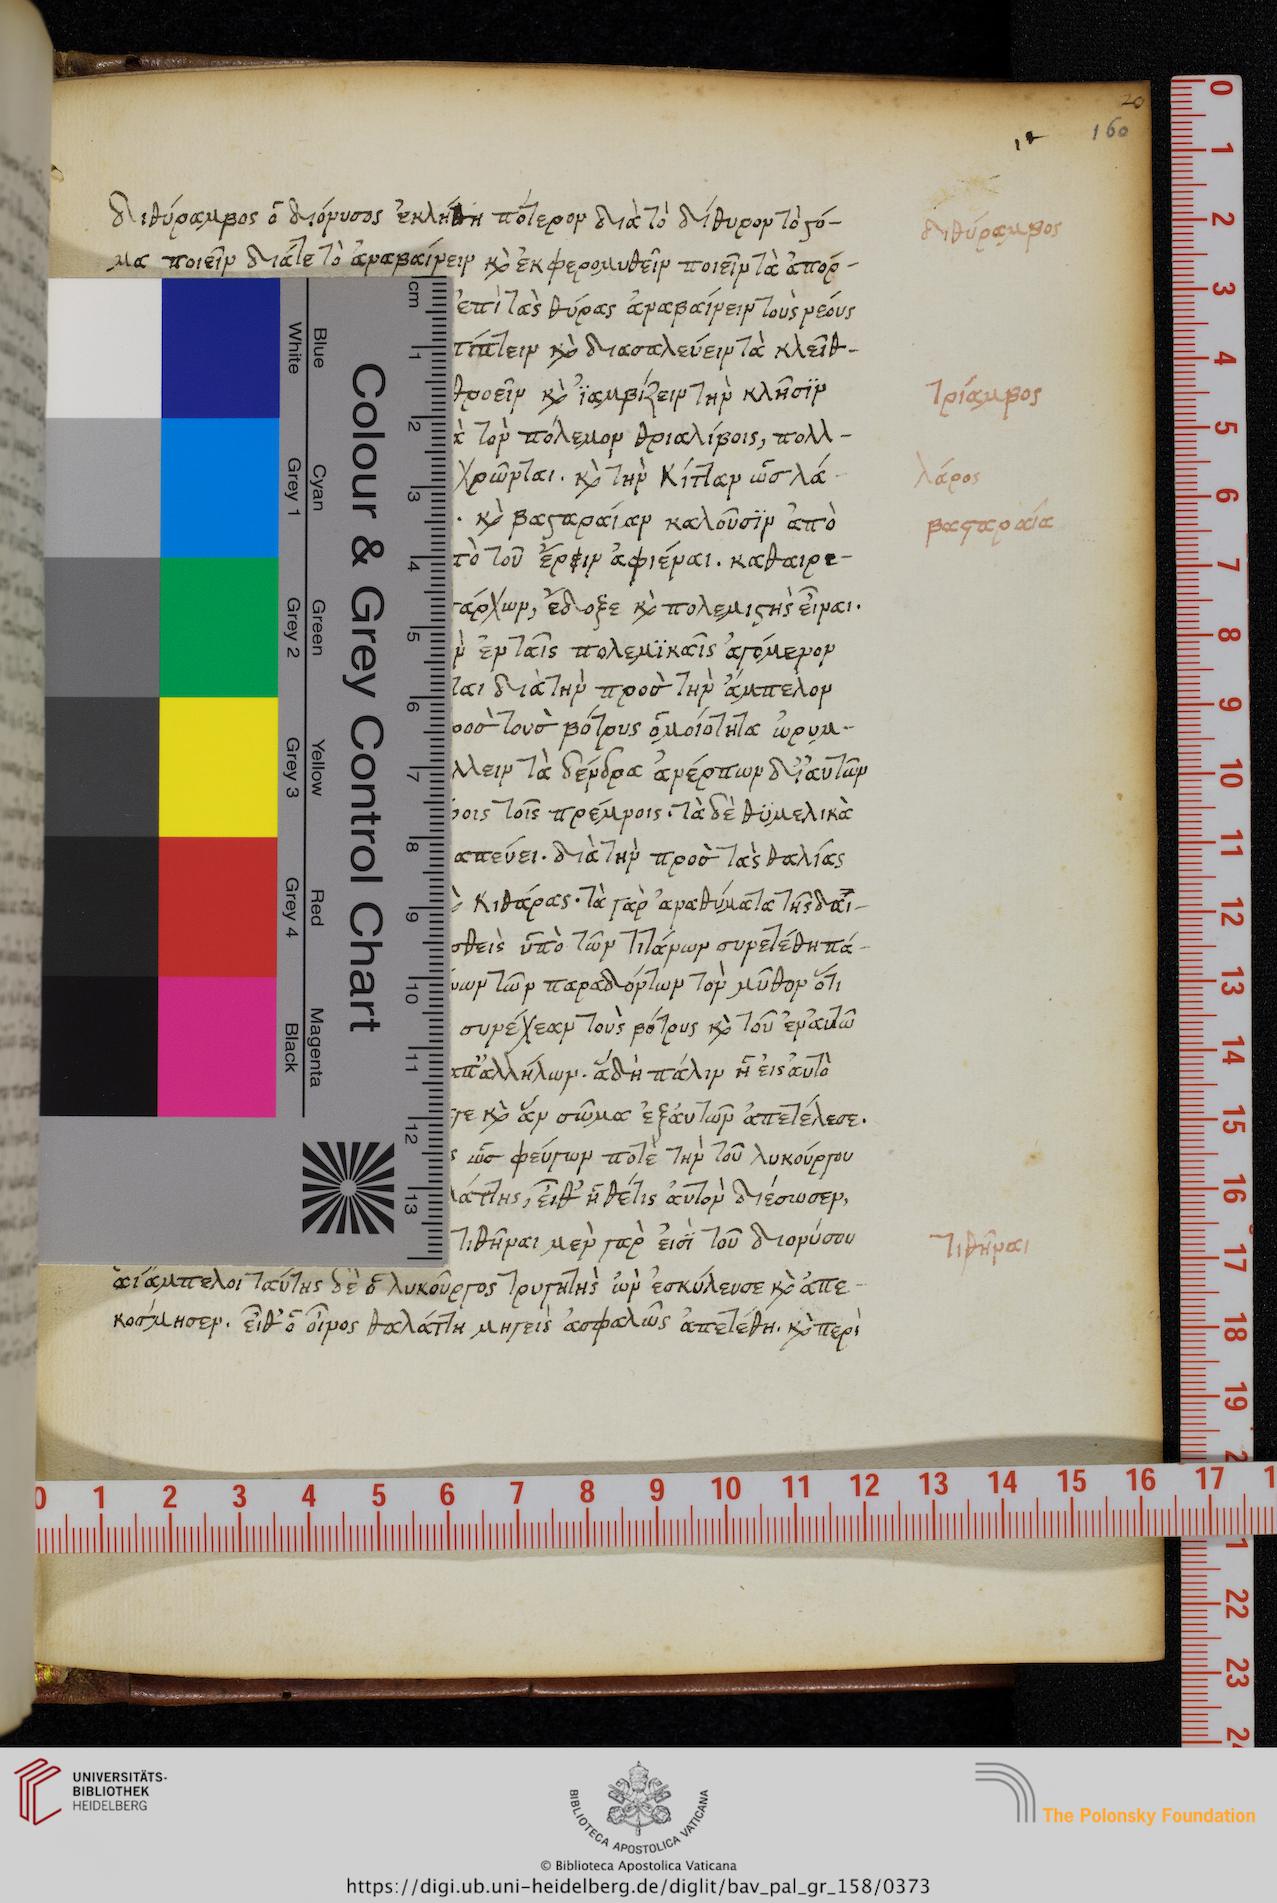 20
160
διθύραμβος ὁ διόνυσος ἐκλήθη πότερον διὰ τὸ δίθυρον τὸ στό-
διθύραμβος
μα ποιεῖν διά τε τὸ ἀναβαίνειν κὶ ἐκφερομυθεῖν ποιεῖν τὰ ἀπορ-
ἐπὶ τὰς θύρας ἀναβαίνειν τοὺς νέους
πίπτειν κὶ διασαλεύειν τὰ κλεῖθ-
θροεῖν κὶ ἰαμβίζειν τὴν κλῆσϊν
τρίαμβος
τὸν πόλεμον θριαλίβοις, πολλ-
χρῶνται. κὶ τὴν κίτταν ὡς λά-
λάρος
κὶ βασσαραίαν καλοῦσϊν ἀπὸ
βασσαραία
τοῦ ἔρψιν ἀφιέναι. καθαιρε-
άρχων, ἔδοξε κὶ πολεμιστὴς εἶναι.
ἐν ταῖς πολεμϊκαῖς ἀγόμενον
ται διὰ τὴν πρὸς τὴν ἄμπελον
ρος τοὺς βότρυς ὁμοιότητα ὠρυμ-
λλειν τὰ δένδρα ἀνέρπων δι' αὐτῶν
οις τοῖς πρέμνοις. τὰ δὲ θϋμελικὰ
απεύει. διὰ τὴν πρὸς τὰς θαλίας
κιθάρας. τὰ γὰρ ἀναθύματα τῆς δαι-
σθεὶς ὑπὸ τῶν τιτάνων συνετέθη πά-
νων τῶν παραδιόντων τὸν μῦθον ὅτι
συνέχεαν τοὺς βότρυς κὶ τοῦ ἐν αὐτῷ
απ' ἀλλήλων. ἃ δὴ πάλιν ἡ εἰς αὐτὸ
γε κὶ ἂν σῶμα ἐξ αὐτῶν ἀπετέλεσε.
ὡς φεύγων ποτὲ τὴν τοῦ λυκούργου
λάττης, εἶθ' ἡ θέτις αὐτὸν διέσωσεν,
τιθῆναι μὲν γὰρ εἰσὶ τοῦ διονύσου
τιθῆναι
αἱ ἄμπελοι ταύτης δὲ ὁ λυκοῦργος τρυγητὴς ὢν ἐσκύλευσε κὶ ἀπε-
κοσμησεν. εἶθ' ὁ οἶνος θαλάττη μηγεὶς ἀσφαλῶς ἀπετέθη. κὶ περὶ
Colour & Grey Control Chart
Blue
Cyan
Green
Yellow
Red
Magenta
White
Grey 1
Grey 2
Grey 3
Grey 4
Black
cm 1 2 3 4 5 6 7 8 9 10 11 12 13
0 1 2 3 4 5 6 7 8 9 10 11 12 13 14 15 16 17 1
0 1 2 3 4 5 6 7 8 9 10 11 12 13 14 15 16 17 18 19 2 1 22 23 24
UNIVERSITÄTS-
BIBLIOTHEK
HEIDELBERG
BIBLIOTECA APOSTOLICA VATICANA
The Polonsky Foundation
© Biblioteca Apostolica Vaticana
https://digi.ub.uni-heidelberg.de/diglit/bav_pal_gr_158/0373